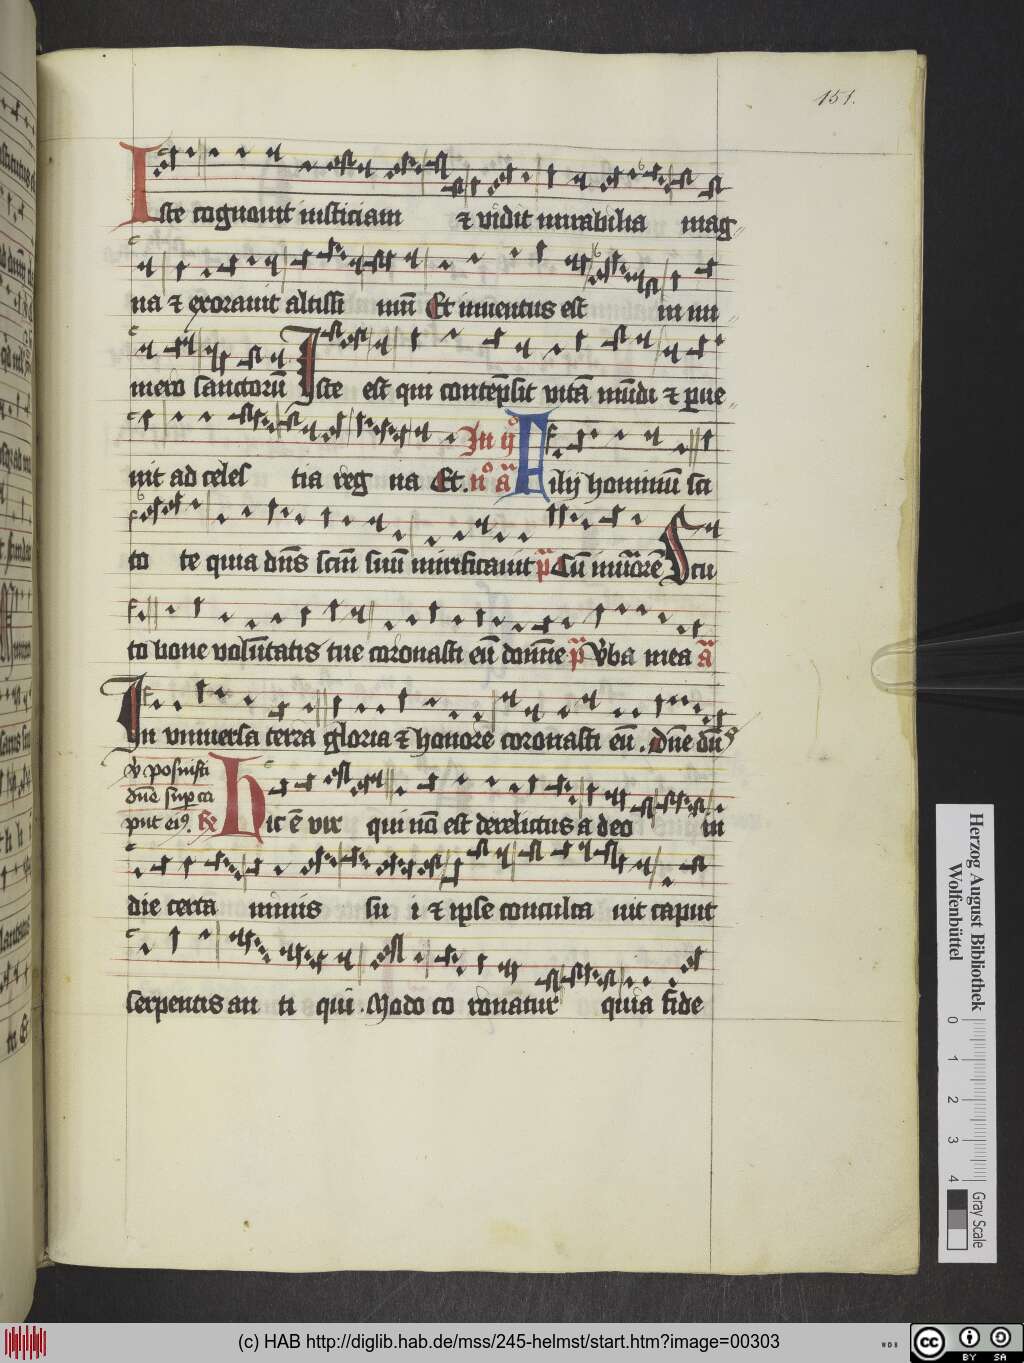 151.
Iste cognouit iusticiam & vidit mirabilia mag
na & exorauit altissi mū Et inuentus est in nu
mero sanctorū Iste est qui contēpsit vitā mūdi & pue
nit ad celes tia reg na Et. In ijᵒ nᵒ a̅ Filij hominū sci
to te quia dn̄s scm̄ suū mirificauit p̅ Cū inuocarē Scu
to bone volūtatis tue coronasti eū domīne p̅ V̄ba mea a̅
In vniuersa terra gloria & honore coronasti eū . dn̄e dn̄s
v̄ posuisti
dn̄e sup ca
put eiꝰ. R̄
Hic ē vir qui nō est derelictus a deo in
die certa minis su i & ipse conculca uit caput
serpentis an ti qui . Modo co ronatur quia fide
Herzog August Bibliothek
Wolfenbüttel
0 1 2 3 4
Gray Scale
(c) HAB http://diglib.hab.de/mss/245-helmst/start.htm?image=00303
WDB
CC BY SA